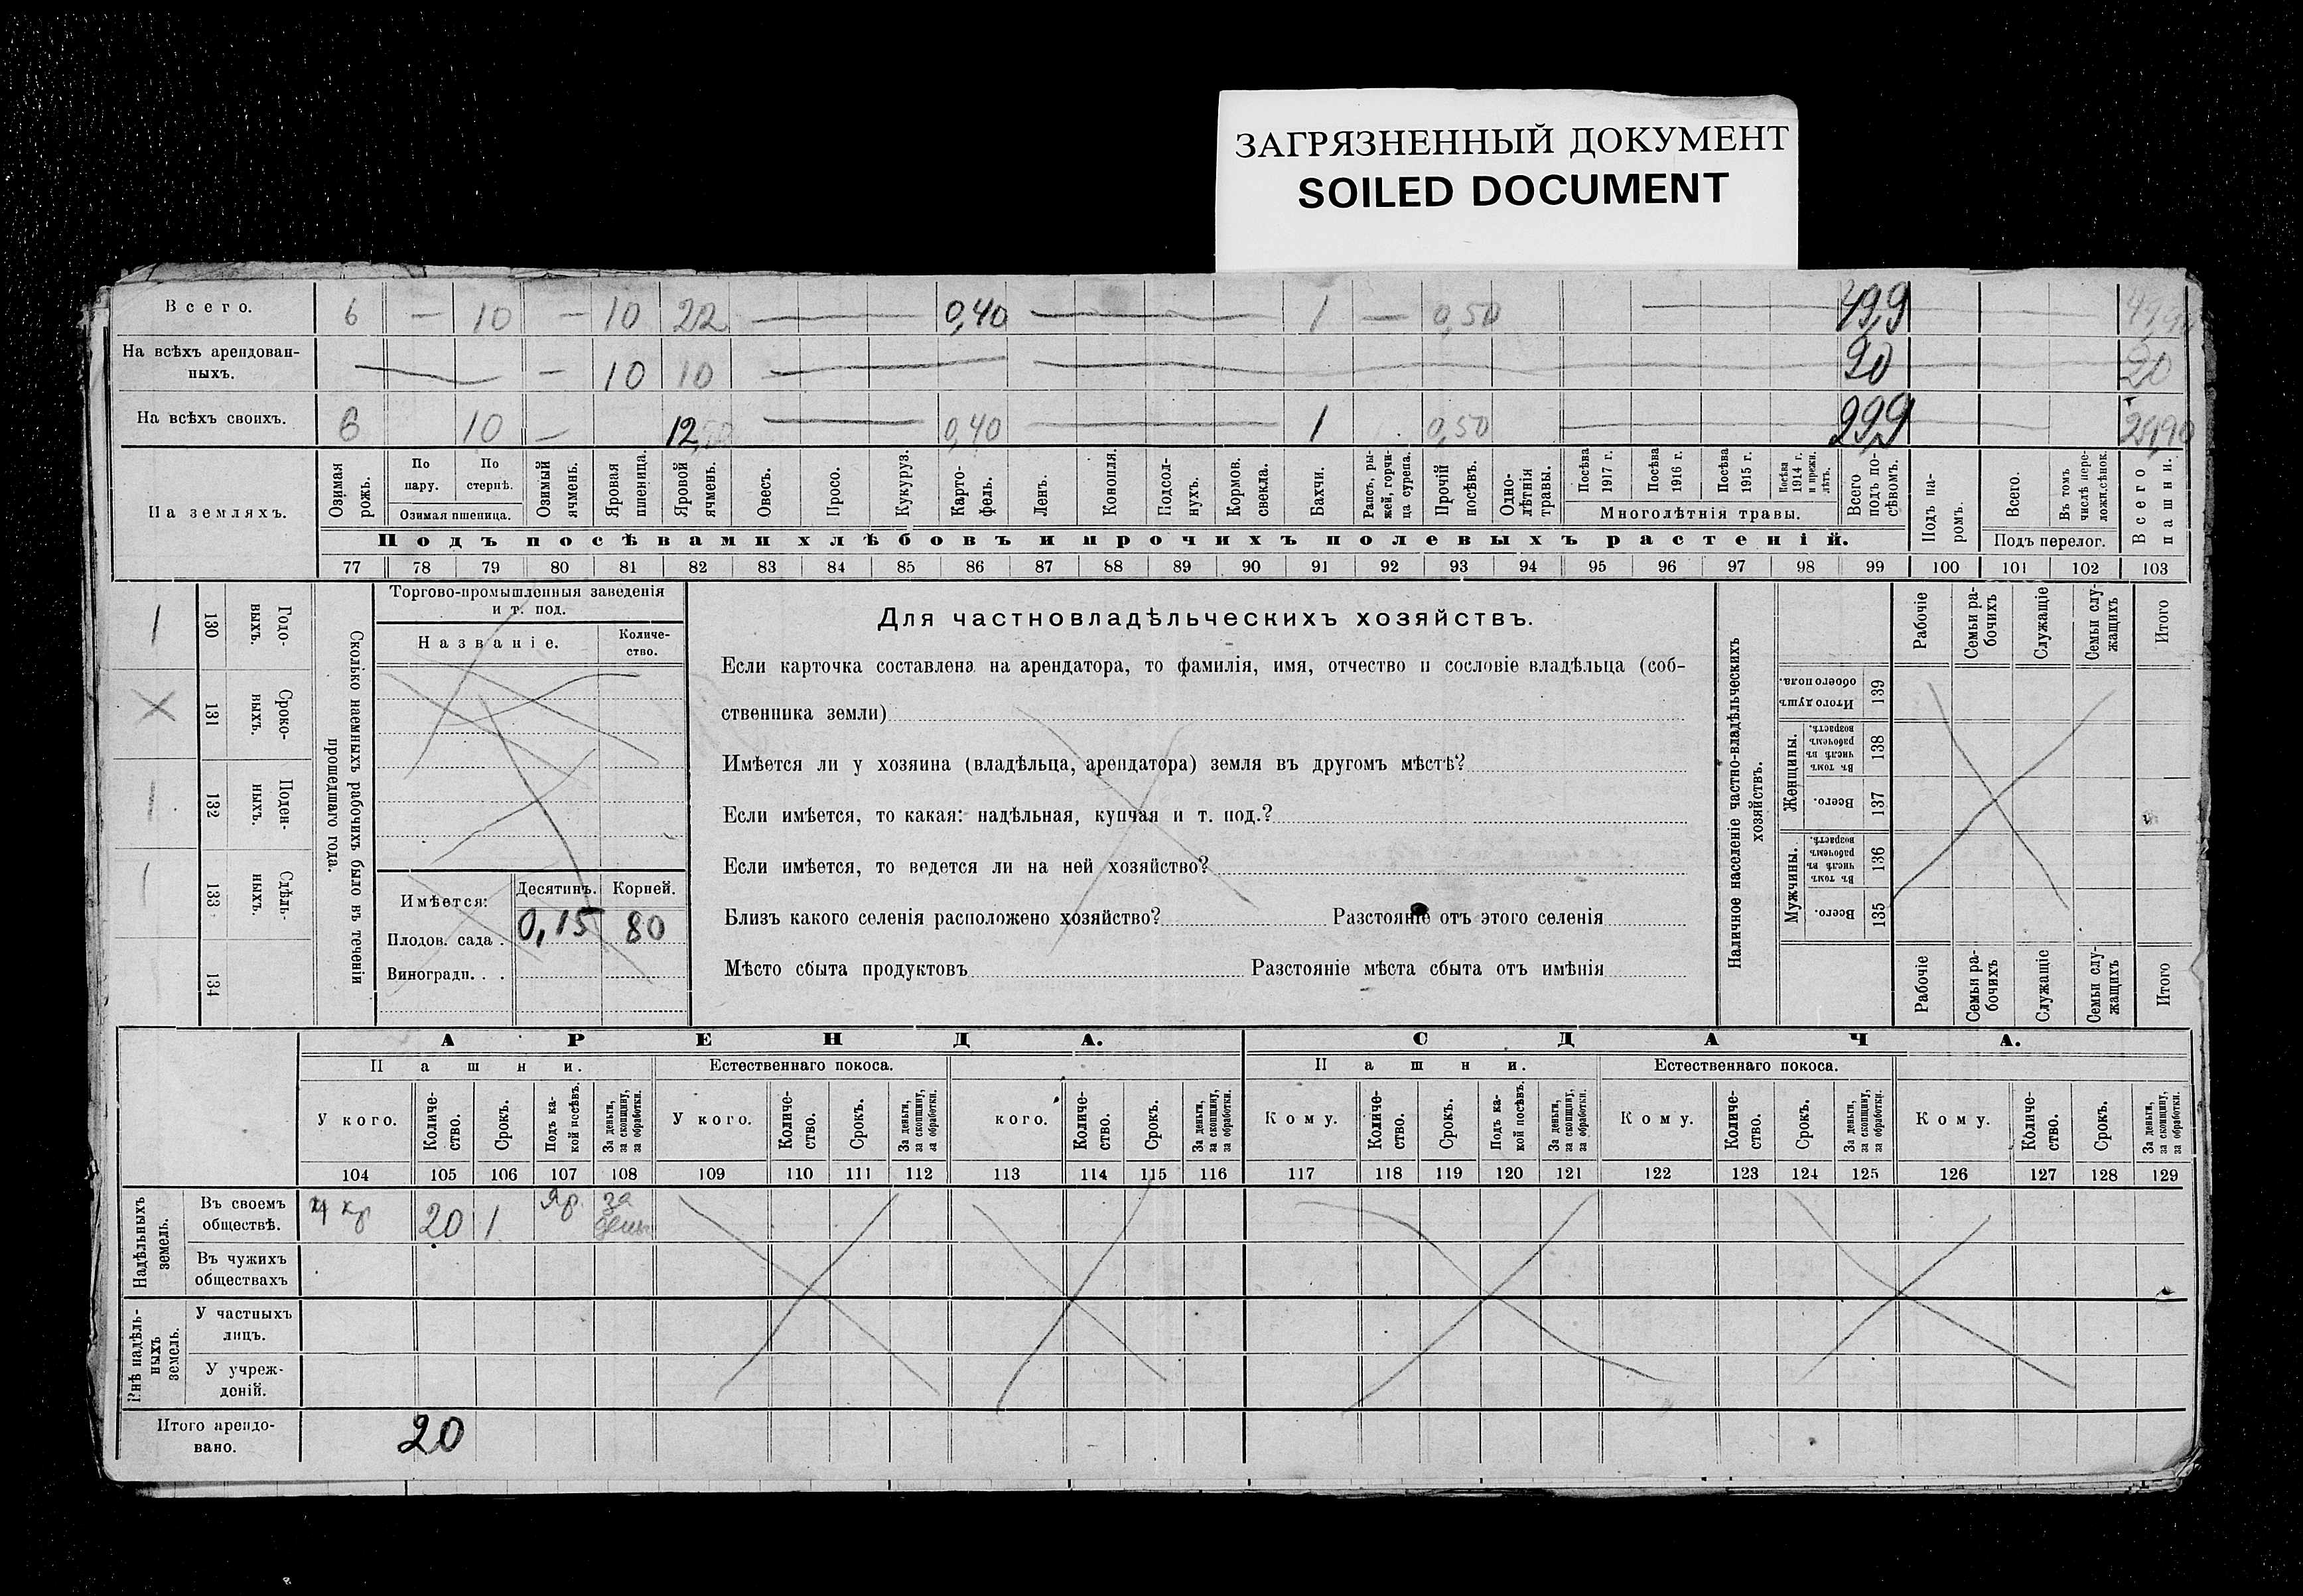 ЗАГРЯЗНЕННЫЙ ДОКУМЕНТ
SOILED DOCUMENT
Всего. 6 — 10 — 10 22 — 0,40 — 1 — 0,50 — 49,9 49,90
На всѣхъ арендован-
ныхъ. — — 10 10 — — 20 20
На всѣхъ своихъ. 6 10 — 12,00 — 0,40 — 1 0,50 — 29,9 29,90
На земляхъ.
Озимая рожь.
По пару.
По стернѣ.
Озимая пшеница.
Озимый ячмень.
Яровая пшеница.
Яровой ячмень.
Овесъ.
Просо.
Кукуруз.
Карто-
фель.
Ленъ.
Конопля.
Подсол-
нухъ.
Кормов. свекла.
Бахчи.
Рапсъ, ры-
жей, горчи-
ца сурепа.
Прочій посѣвъ.
Одно-
лѣтнія травы.
Посѣва 1917 г.
Посѣва 1916 г.
Посѣва 1915 г.
Посѣва 1914 г. и прежн. лѣтъ.
Многолѣтнія травы.
Всего подъ по-
сѣвомъ.
Подъ па-
ромъ.
Всего.
Въ томъ числѣ пере-
ложн.сѣнок.
Подъ перелог.
Всего пашни.
Подъ посѣвами хлѣбовъ и прочихъ полевыхъ растеній.
77 78 79 80 81 82 83 84 85 86 87 88 89 90 91 92 93 94 95 96 97 98 99 100 101 102 103
130 Годо-
ныхъ.
131 Сроко-
ныхъ.
132 Поден-
ныхъ.
133 Сдѣль-
ныхъ.
134
Сколько наемныхъ рабочихъ было въ теченіи
прошедшаго года.
Торгово-промышленныя заведенія
и т. под.
Названіе.
Количе-
ство.
Имѣется: Десятинъ. Корней.
Плодов. сада . 0,15 80
Виноградн. . .
Для частновладѣльческихъ хозяйствъ.
Если карточка составлена на арендатора, то фамилія, имя, отчество и сословіе владѣльца (соб-
ственника земли)
Имѣется ли у хозяина (владѣльца, арендатора) земля въ другомъ мѣстѣ?
Если имѣется, то какая: надѣльная, купчая и т. под.?
Если имѣется, то ведется ли на ней хозяйство?
Близъ какого селенія расположено хозяйство? Разстояніе отъ этого селенія
Мѣсто сбыта продуктовъ Разстояніе мѣста сбыта отъ имѣнія
Наличное населеніе частно-владѣльческихъ
хозяйствъ.
Рабочіе
Семьи ра-
бочихъ
Служащіе
Семьи слу-
жащихъ
Итого
Итого душъ обоего пола. 139
Женщины.
Въ томъ числѣ въ рабочемъ возрастѣ. 138
Всего. 137
Мужчины.
Въ томъ числѣ въ рабочемъ возрастѣ. 136
Всего. 135
Рабочіе
Семьи ра-
бочихъ
Служащіе
Семьи слу-
жащихъ
Итого
АРЕНДА. СДАЧА.
Пашни. Естественнаго покоса. Пашни. Естественнаго покоса.
У кого. Количе-
ство. Срокъ. Подъ ка-
кой посѣвъ. За деньги, за скопщину, за обработки.
У кого. Количе-
ство. Срокъ. За деньги, за скопщину, за обработки.
кого. Количе-
ство. Срокъ. За деньги, за скопщину, за обработки.
Кому. Количе-
ство. Срокъ. Подъ ка-
кой посѣвъ. За деньги, за скопщину, за обработки.
Кому. Количе-
ство. Срокъ. За деньги, за скопщину, за обработки.
Кому. Количе-
ство. Срокъ. За деньги, за скопщину, за обработки.
104 105 106 107 108 109 110 111 112 113 114 115 116 117 118 119 120 121 122 123 124 125 126 127 128 129
Надѣльныхъ
земель.
Въ своемъ
обществѣ. кр 20 1 Яр. за
день
Въ чужихъ
обществахъ
Внѣ надѣль-
ныхъ
земель.
У частныхъ
лицъ.
У учреж-
деній.
Итого арендо-
вано. 20